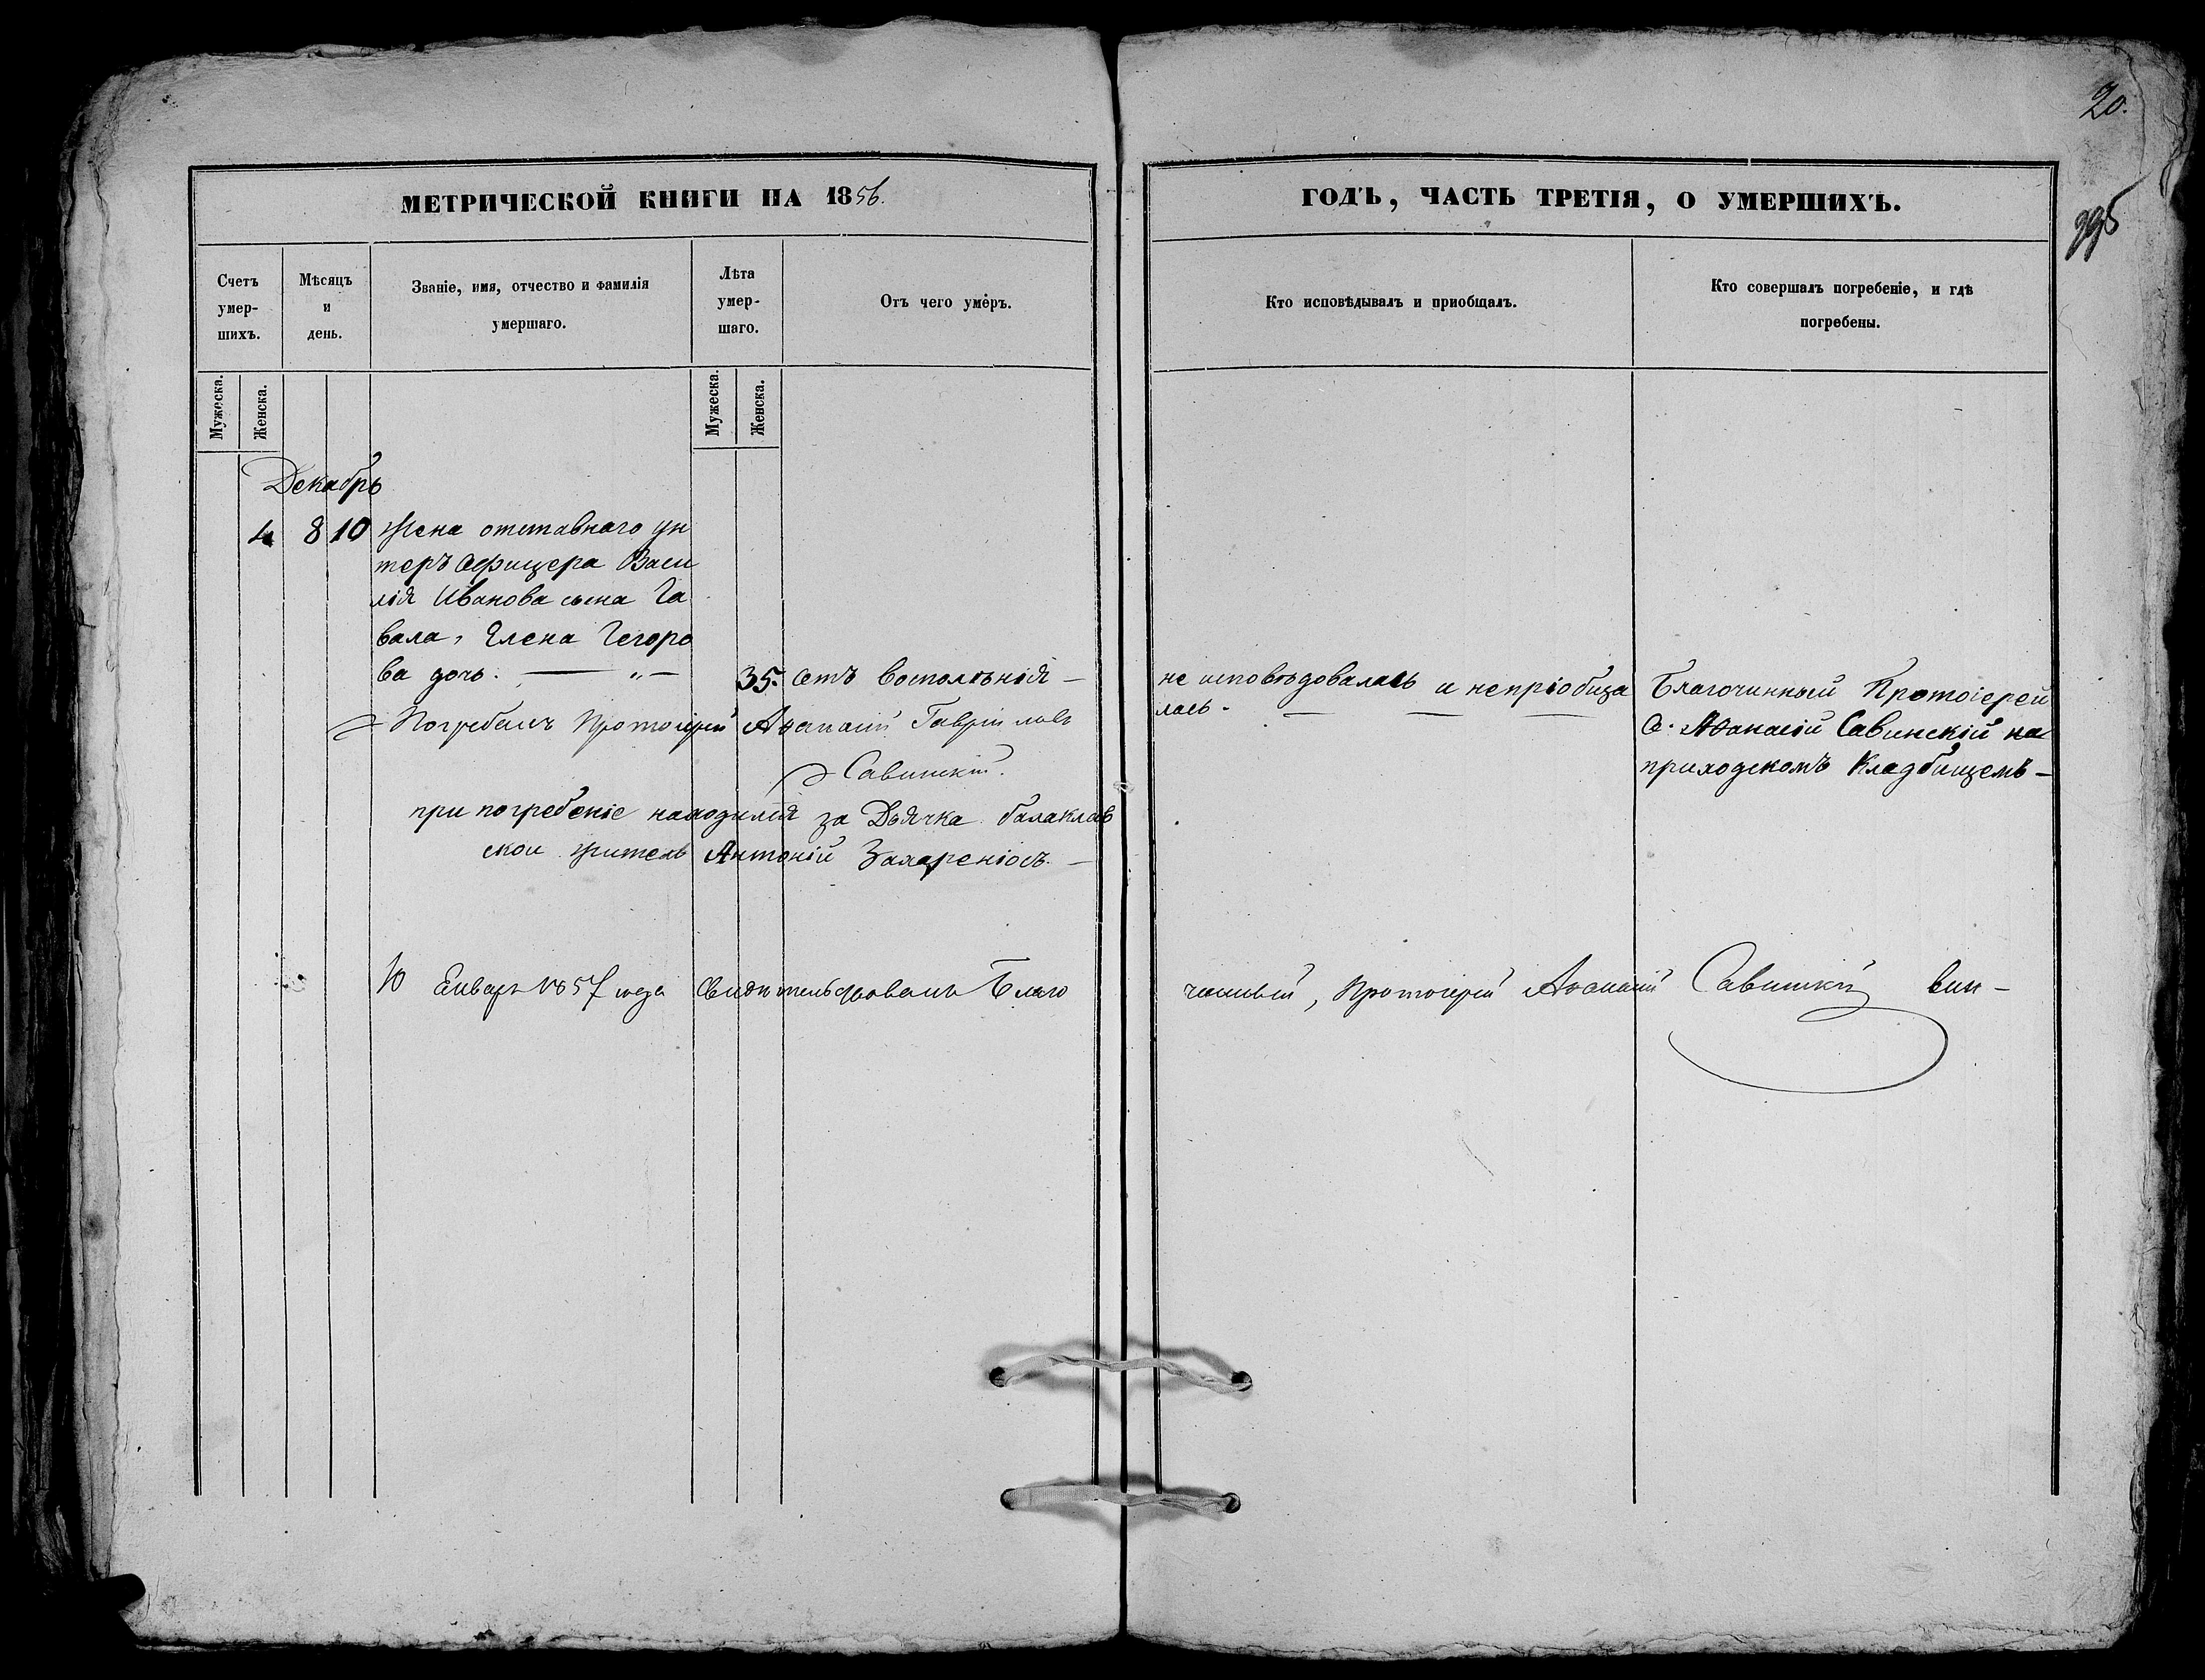 20.
995
МЕТРИЧЕСКОЙ КНИГИ НА 1856.
ГОДЪ, ЧАСТЬ ТРЕТІЯ, О УМЕРШИХЪ.
Счетъ умер- шихъ.
Мѣсяцъ и день.
Званіе, имя, отчество и фамилія умершаго.
Лѣта умер- шаго.
Отъ чего умеръ.
Кто исповѣдывалъ и приобщалъ.
Кто совершалъ погребеніе, и гдѣ погребены.
Мужеска. Женска.
Мужеска. Женска.
Декабрь
4 8 10 Жена отставнаго ун
теръ Офицера Васи
лія Иванова сына Га
вала, Елена Гегоро
ва дочь. — „ —
35. Отъ восполенія —
не исповѣдовалась и непріобща
лась.
Благочинный Протоіерей
О. Аѳанасій Савинскій на
приходскомъ Кладбищемъ —
Погребалъ Протоіерей Аѳанасій Гавріиловъ
Савинскій.
при погребеніе находился за Дьячка балаклав
скои житель Антоній Захареніосъ. —
10 Енваря 1857 года Свидѣтельствовалъ Благо
чинный, Протоіерей Аѳанасій Савинскій